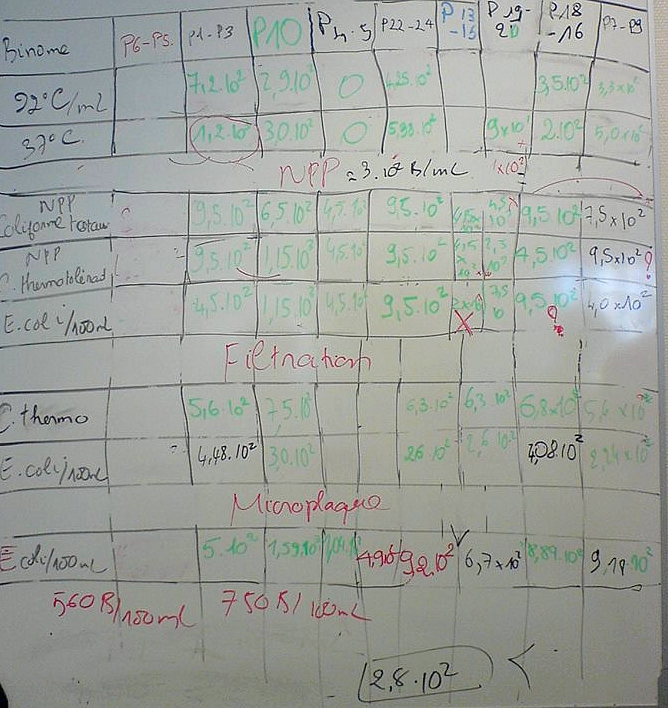 Binome P6-P5. P1-P3 P10 P4.5 P22-24 P13-15 P19-20 P18-16 P7-P9
22°C/mL 7,2.10² 2,9.10² 0 3,5.10² 3,3×10²
37°C. 1,2.10² 3,0.10² 0 5,98.10² 9×10¹ 2.10² 5,0×10²
NPP = 3.10² B/mL 1×10²
NPP Coliforme totaux 9,5.10² 6,5.10² 4,5.10² 9,5.10² 9,5.10² 7,5×10²
NPP C. thermotolérant 9,5.10² 1,15.10² 4,5.10² 9,5.10² 4,5.10² 9,5×10² ?
E.coli/100mL 4,5.10² 1,15.10² 4,5.10² 9,5.10² X 9,5.10² ? 4,0×10²
Filtration
C.thermo 5,6.10² 7,5.10² 6,3.10² 6,3 10² 6,8×10² 5,6×10²
E.coli/100mL 4,48.10² 3,0.10² 26 10² 2,6 10² 4,08.10² 2,24×10²
Microplaque
E.coli/100mL 5.10² 1,59.10² 9,2.10² 6,7×10² 8,89.10² 9,19.10²
560 B/100mL 750 B/100mL
2,8.10² <